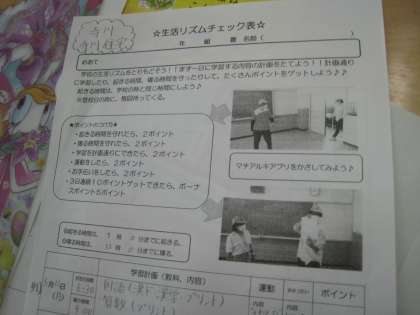 ☆生活リズムチェック表☆
年 組 番 名前( )
めあて
学校の生活リズムをとりもどそう!!まず一日に学習する内容の計画をたてよう!!計画通り
に学習したり、起きる時間、寝る時間を守ったりして、たくさんポイントをゲットしよう♪♪
起きる時間は、学校の時と同じ時間にしよう♪
※登校日の時に、毎回持ってくる。
★ポイントのつけ方★
・起きる時間を守れたら、2ポイント
・寝る時間を守れたら、2ポイント
・学習を計画通りにできたら、2ポイント
・運動をしたら、2ポイント
・お手伝いをしたら、2ポイント
・3日連続10ポイントゲットできたら、ボーナ
スポイント5ポイント
マチアルキアプリをかざしてみよう♪
◎起きる時間は、 時 分までに起きる。
◎寝る時間は、 時 分までに寝る。
学習計画(教科、内容)
運動
ポイント
6:30
(月)
内容